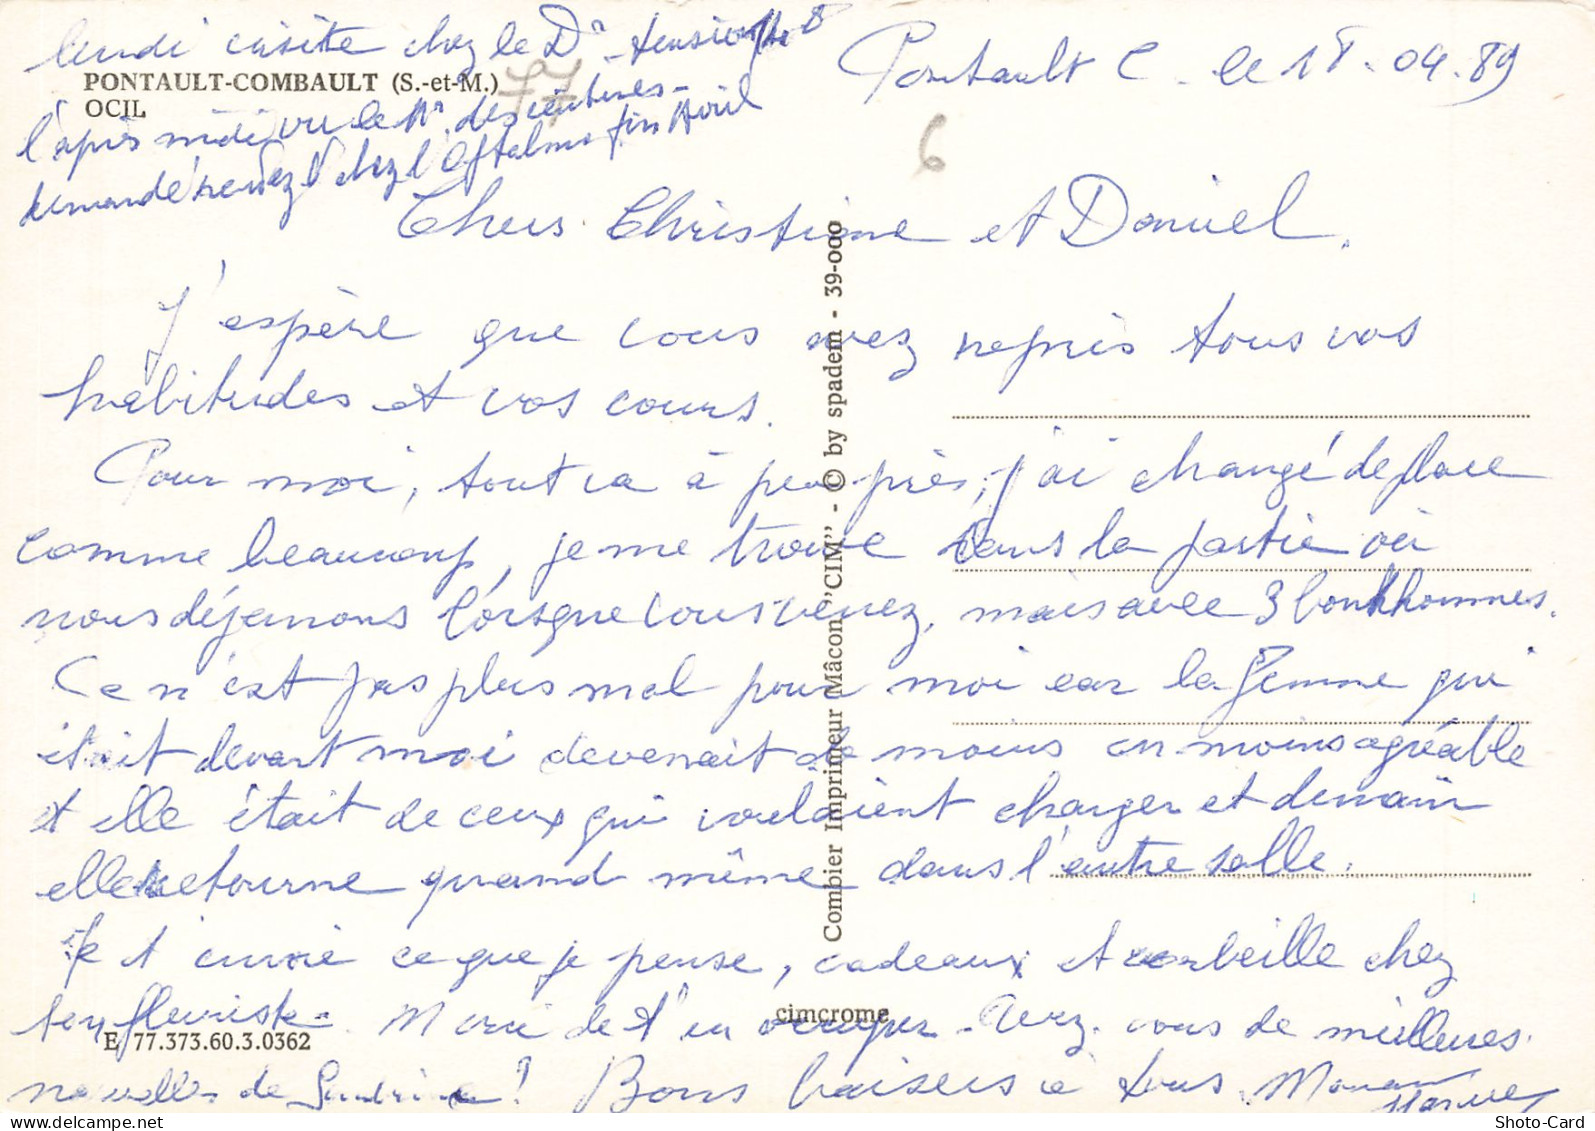 lundi visite chez le Dr tension 14 8
Pontault C. le 18.04.89
PONTAULT-COMBAULT (S.-et-M.)
OCIL
77
l'après midi vu le Mr. des ceintures -
demandé rendez V chez l'Oftalmo fin Avril
6
Chers Christiane et Daniel.
J'espère que vous avez repris tous vos
habitudes et vos cours.
Pour moi, tout va à peu près, j'ai changé de place
comme beaucoup, je me trouve dans la partie où
nous déjeunons lorsque vous venez, mais avec 3 bonhommes.
Ce n'est pas plus mal pour moi car la femme qui
était devant moi devenait de moins en moins agréable
et elle était de ceux qui voulaient changer et demain
elle retourne quand même dans l'autre salle.
Je t'envoie ce que je pense, cadeaux et corbeille chez
ton fleuriste. Merci de t'en occuper - Avez-vous de meilleures
nouvelles de Sandrine ! Bons baisers à tous. Maman
Combier Imprimeur Mâcon "CIM" - © by spadem - 39-000
cimcrome
E 77.373.60.3.0362
Shoto-Card